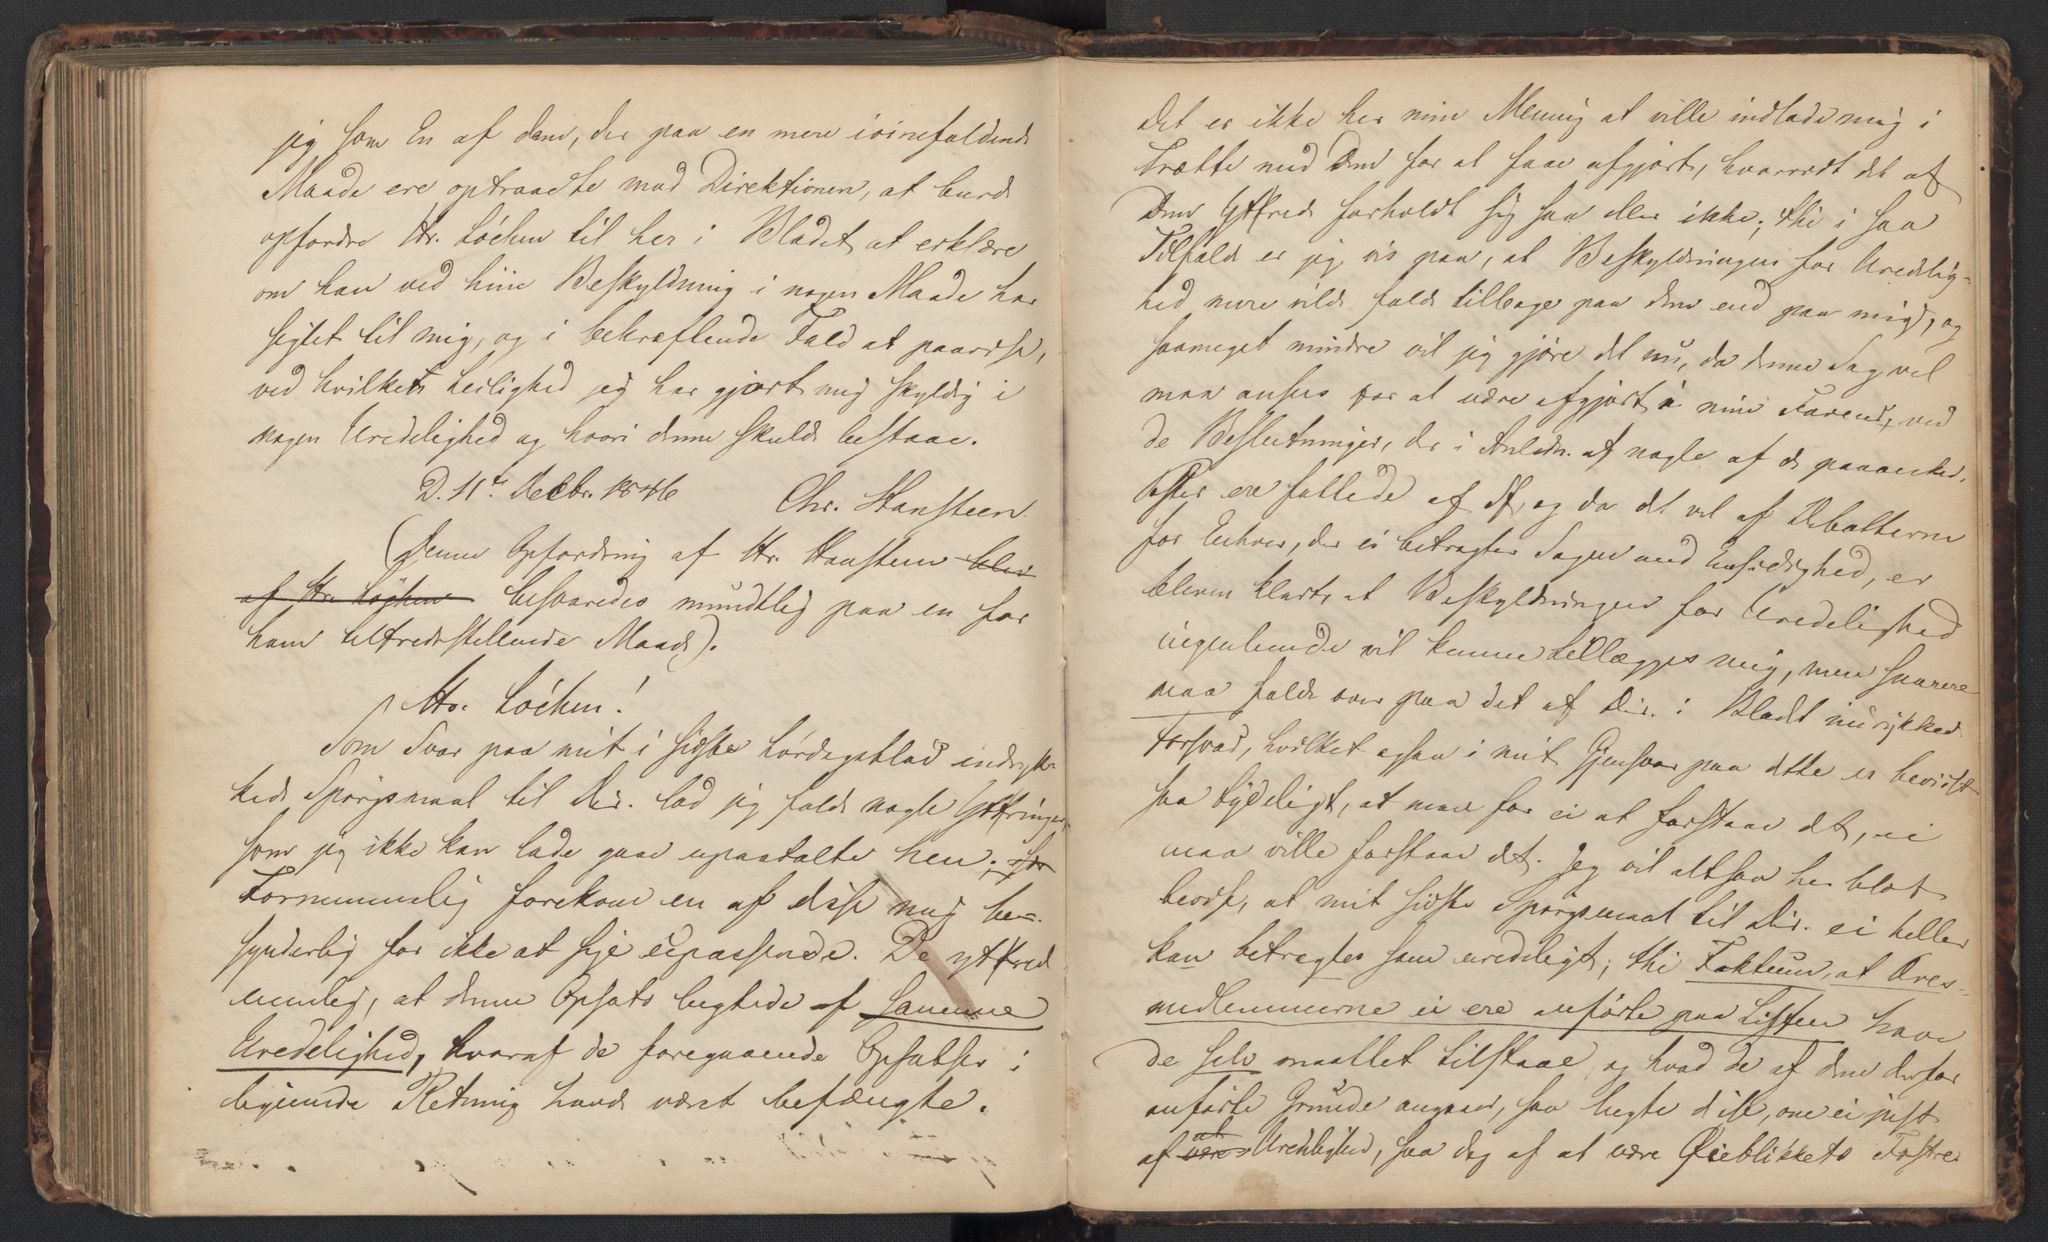 jeg som En af dem, der paa en mere iøinefaldende
Maade ere optraadte mod Direktionen, at burde
opfordre Hr. Løchen til her i Bladet at erklære
om han ved hiin Beskyldning i nogen Maade har
sigtet til mig, og i bekræftende Fald at paavise,
ved hvilken Leilighed jeg har gjort mig skyldig i
nogen Uredelighed og hvori denne skulde bestaae.
D. 11te Decbr. 1846 Chr. Hansteen
(Denne Opfordring af Hr. Hansteen blev
af Hr. Løchen besvaredes mundtlig paa en for
ham tilfredsstillende Maade).
Hr. Løchen!
Som Svar paa mit i sidste Lørdagsblad indryk-
kede Spørgsmaal til Dir. lod jeg falde nogle Yttringer,
som jeg ikke kan lade gaae upaatalte hen; for
Fornemmelig forekom en af disse mig be-
synderlig for ikke at sige upassende. De yttrede
nemlig, at denne Opsats lugtede af samme
Uredelighed, hvoraf de foregaaende Opsatser i
lignende Retning havde været befængte.
Det er ikke her min Mening at ville indlade mig i
Trætte med Dem for at faae afgjort, hvorvidt det af
Dem Yttrede forholdt sig saa eller ikke; thi i saa
Tilfælde er jeg vis paa, at Beskyldningen for Uredelig-
hed mere vilde falde tilbage paa dem end paa mig, og
saameget mindre vil jeg gjøre det nu, da denne Sag vel
maa ansees for at være afgjort i min Faveur, ved
de Beslutninger, der i Anledn. af nogle af de paaankede
Poster ere fattede af og da det vel af Debatterne
for Enhver, der ei betragter Sagen med Ensidighed, er
bleven klart, at Beskyldningen for Uredelighed
ingenlunde vil kunne tillægges mig, men snarere
maa falde over paa det af Dir. i Bladet indrykkede
Forsvar, hvilket ogsaa i mit Gjensvar paa dette er beviist
saa tydeligt, at man for ei at forstaae det, ei
maa ville forstaae det. Jeg vil altsaa her blot
bevise, at mit sidste Spørgsmaal til Dir. ei heller
kan betragtes som uredeligt; thi Faktum, at Æres-
medlemmerne ei ere anførte paa Listen have
de selv maattet tilstaae, og hvad de af dem derfor
anførte Grunde angaaer, saa lugte disse, om ei just
af at være Uredelighed, saa dog af at være Øieblikkets Fostre